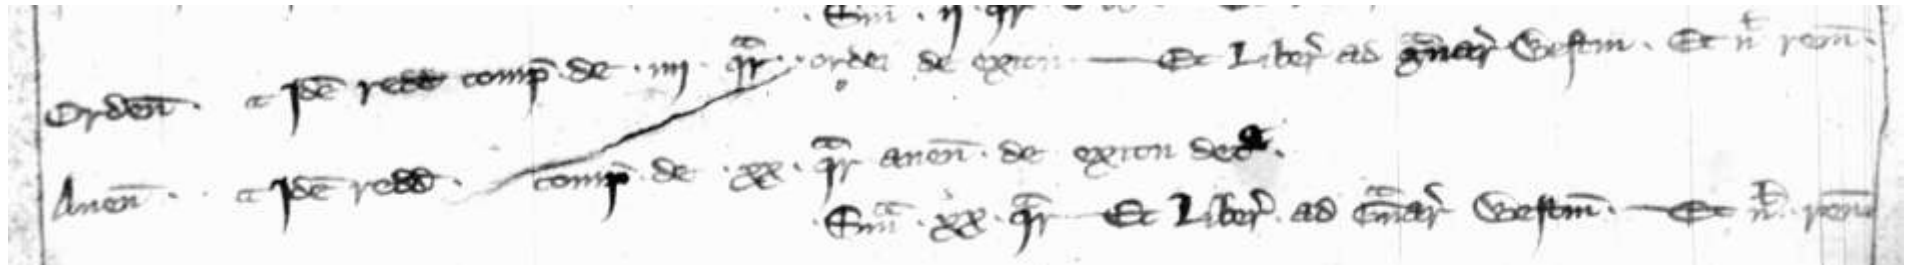 Sm̄ . ij . qr̄
Orden̄ . Idē redd comp̄ . de . iiij . qr̄ . ordei de exitu — Et Liber̄ ad gᵃnar̄ Westm . Et nᵗ rem̄ .
Auen̄ . Idē redd . comp̄ . de . xx . qr̄ auen̄ . de exitu
Sm̄ᵃ . xx . qr̄ Et Liber̄ . ad gᵃnar̄ Westm̄ . — Et nᵗ . rem̄